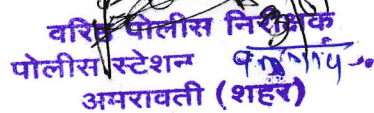 वरिष्ठ पोलीस निरीक्षक
पोलीस स्टेशन
अमरावती (शहर)